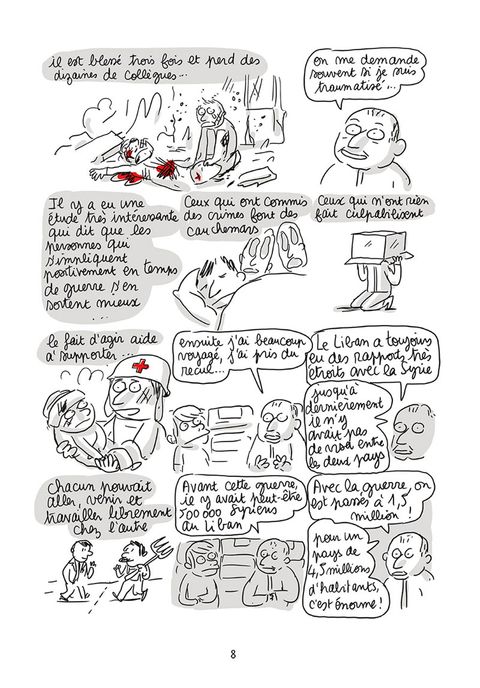 il est blessé trois fois et perd des
dizaines de collègues...
on me demande
souvent si je suis
traumatisé...
Il y a eu une
étude très intéressante
qui dit que les
personnes qui
s'impliquent
positivement en temps
de guerre s'en
sortent mieux
...
Ceux qui ont commis
des crimes font des
cauchemars
Ceux qui n'ont rien
fait culpabilisent
le fait d'agir aide
à supporter...
ensuite j'ai beaucoup
voyagé, j'ai pris du
recul...
Le Liban a toujours
eu des rapports très
étroits avec la Syrie
jusqu'à
dernièrement
il n'y
avait pas
de visa entre
les deux pays
Chacun pouvait
aller, venir et
travailler librement
chez l'autre
Avant cette guerre,
il y avait peut-être
500000 Syriens
au Liban
Avec la guerre, on
est passés à 1,5
million !
pour un
pays de
4,5 millions
d'habitants,
c'est énorme !
8